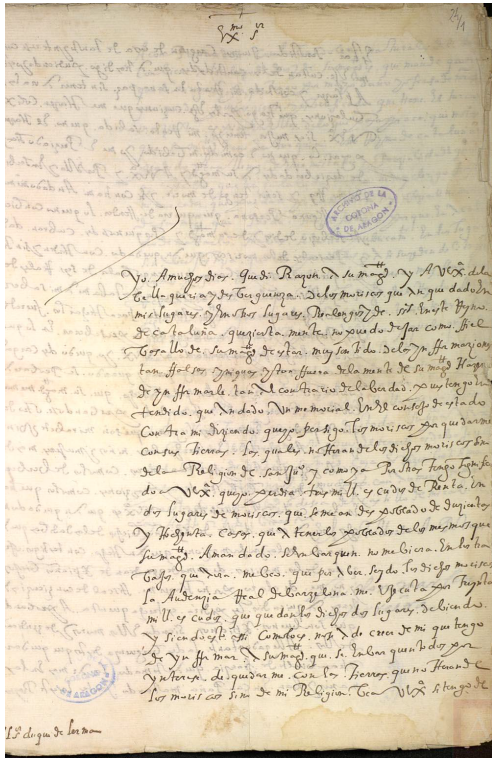 24/1
Ex.mo S.or
ARCHIVO DE LA CORONA DE ARAGON
Yo. A muchos dias. Que di Razon. A su mag.d. y A V Ex.a de la
Bella queria y desberguenza. De los moriscos que An quedado En
mis lugares. y En otros lugares. Realengos y de. En este Reyno
de cataluña. que cierta mente. no puedo dejar como. fiel
basallo de su mag.d de estar. muy sentido. de la ynfformacion
tan. falsa. que estos. fuera de la mente de su mag.d Hazen
de ynfformarle. tan Al contrario de la berdad. y aun tengo En
tendido. que An dado. Un memorial. En El consejo de estado
Contra mi diziendo. que yo. persigo. Los moriscos por quedarme
con sus tierras. Las quales. no Heran de los dichos moriscos sino
de la Religion de san Ju.o y como ya Por otras Tengo
do A V Ex.a que yo. perdia. tres mill. escudos de Renta. En
dos lugares de moriscos. que. se me an despoblado de ducientas
y Casas. que A tenerlos poblados de los mesmos que
Su mag.d A mandado. se Enbarquen. no me biera. En los tra
bajos. que por Aver. los dichos moriscos
La Audienzia Real de barzelona. me por treynta
mill escudos. que quedan los dichos dos lugares. debiendo.
y siendo esto Como es. no se A de creer de mi que tengo
de ynfformar A su mag.d que. se. Enbarquen todos por
ynteres. de quedarme. con las tierras. que no Heran de
Los moriscos sino de mi Religion. Vea V Ex.a si tengo de
ARAGON
S.or duque de Lerma